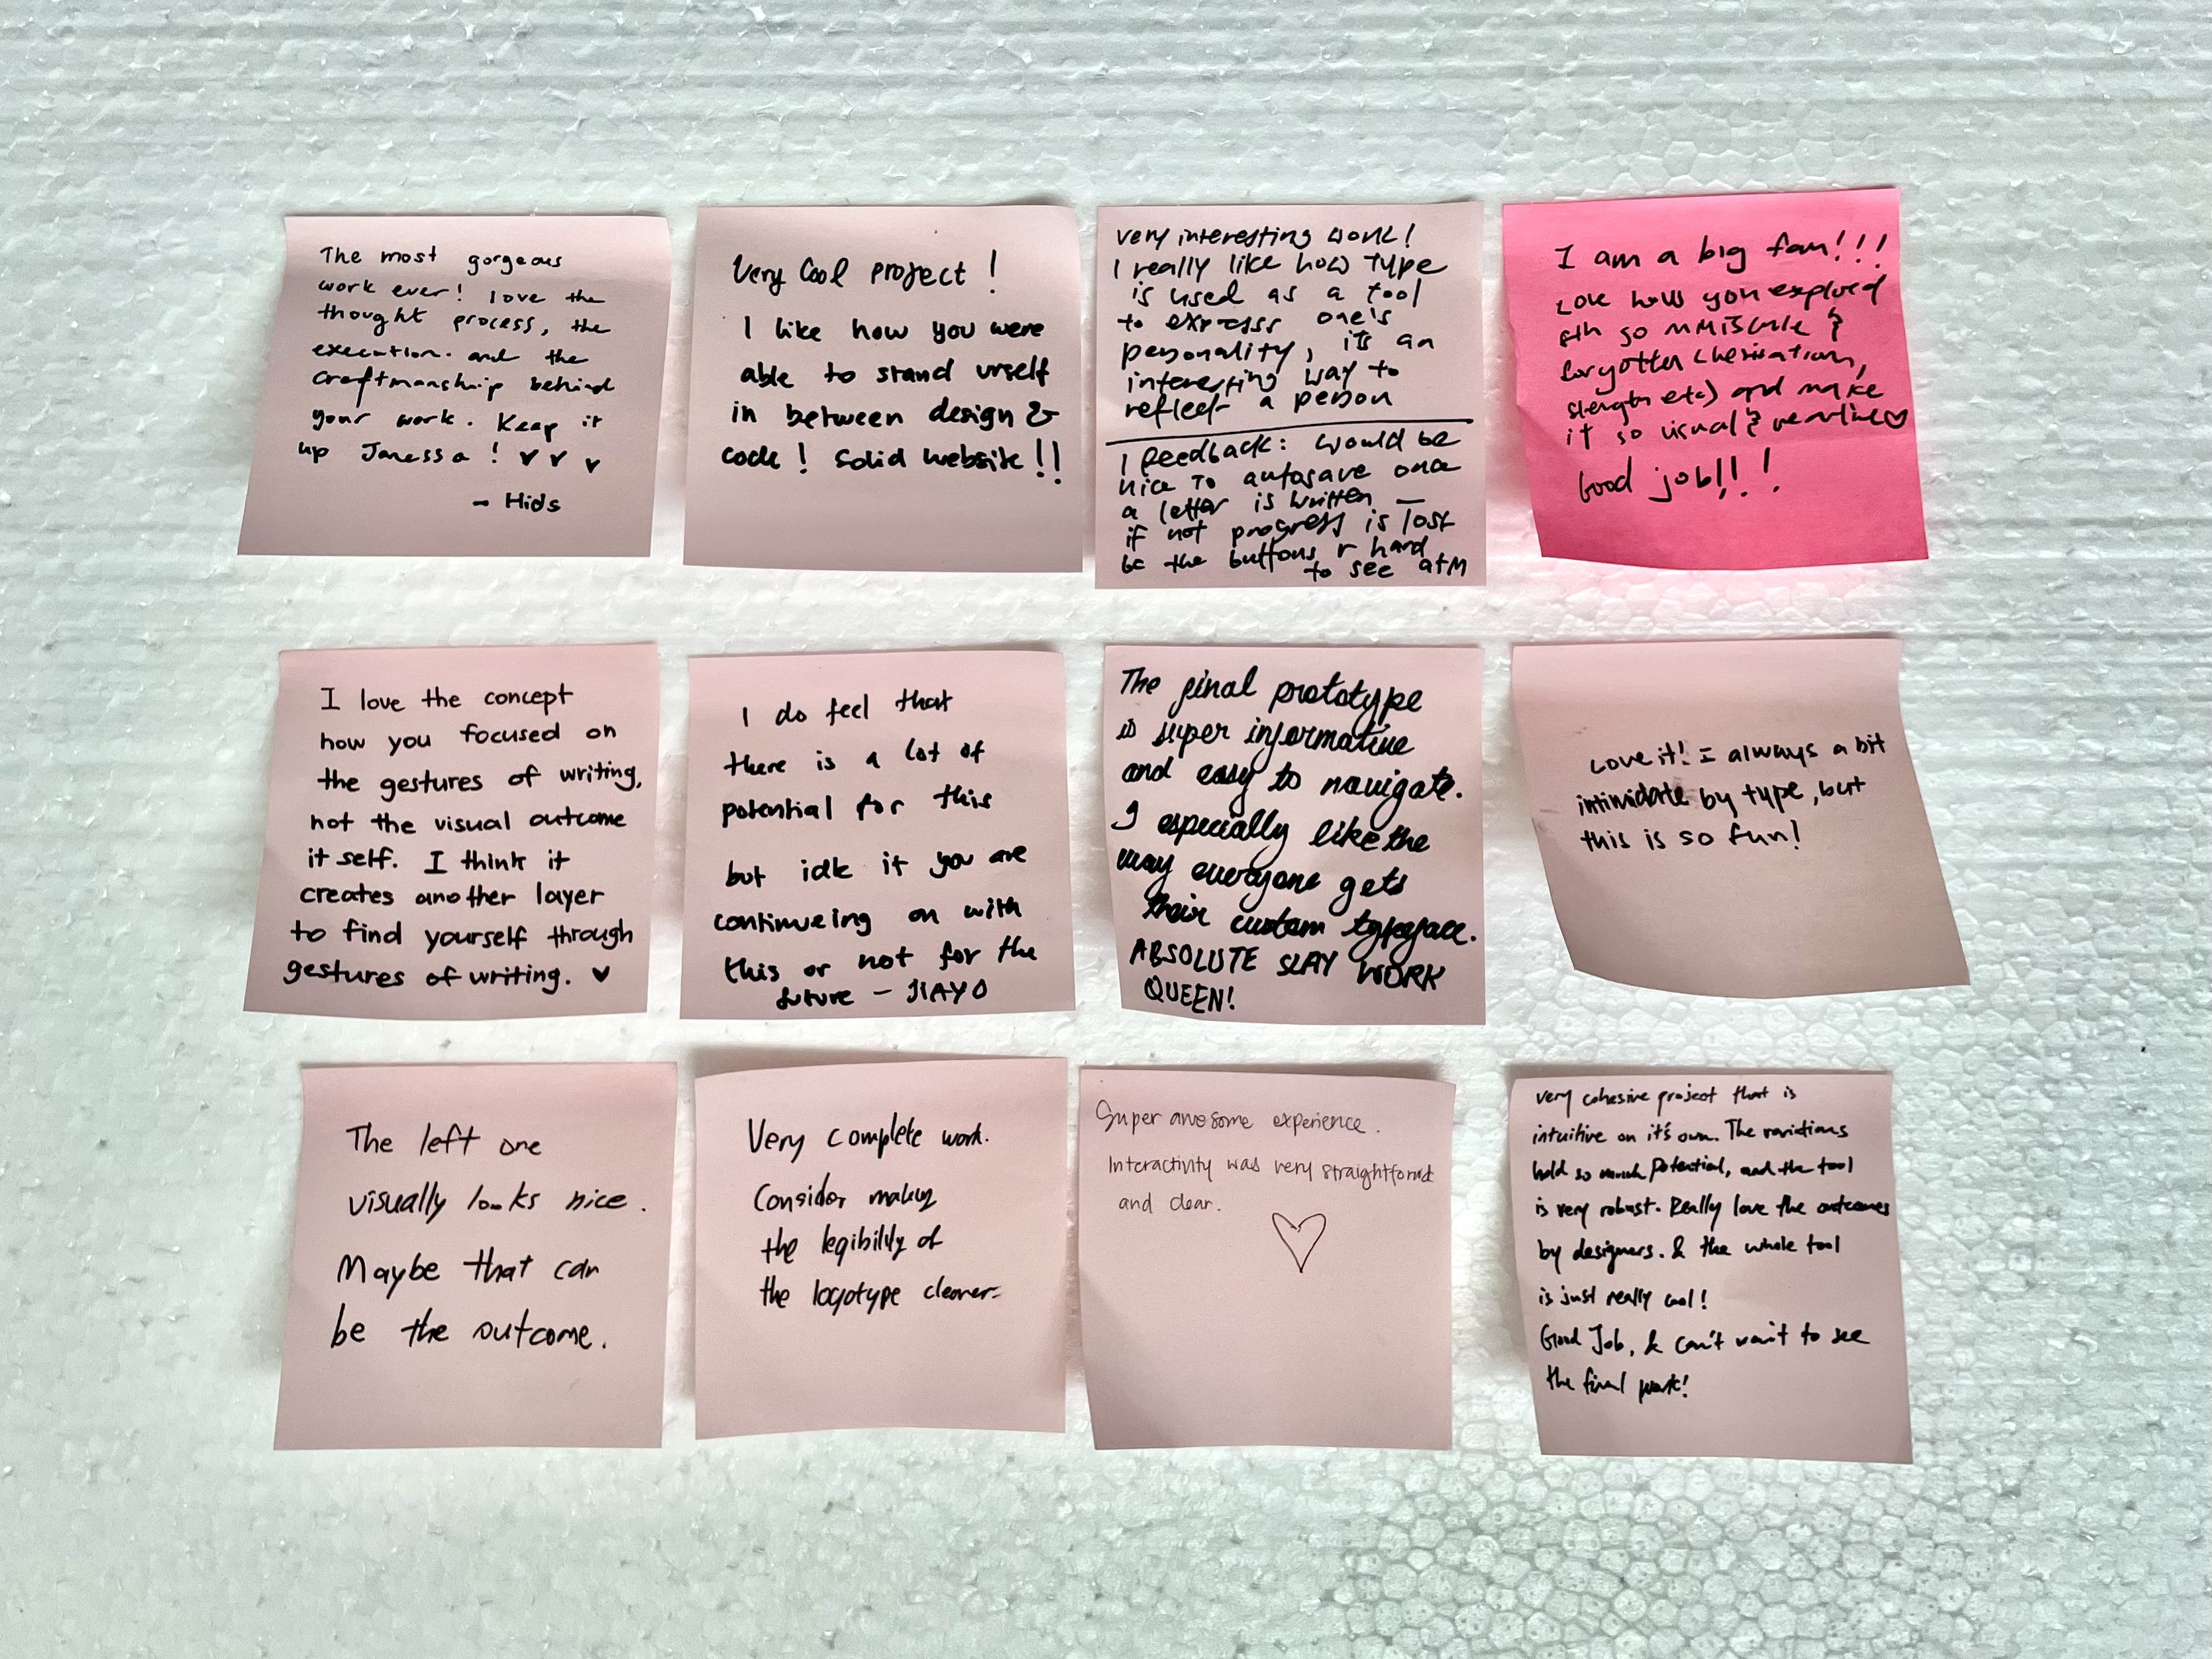 The most gorgeous
work ever! love the
thought process, the
execution. and the
craftmanship behind
your work. Keep it
up Janessa! ♥ ♥ ♥
- Hids
Very Cool project!
I like how you were
able to stand urself
in between design &
code! Solid website!!
Very interesting work!
I really like how type
is used as a tool
to express one's
personality, it's an
interesting way to
reflect a person
1 feedback: would be
nice to autosave once
a letter is written —
if not progress is lost
bc the buttons r hard
to see atm
I am a big fan!!!
Love how you explored
sth so &
forgotten (hesitation,
etc) and make
it so visual & ♡
Good job!!!
I love the concept
how you focused on
the gestures of writing,
not the visual outcome
it self. I think it
creates another layer
to find yourself through
gestures of writing. ♥
I do feel that
there is a lot of
potential for this
but idk if you are
continueing on with
this or not for the
future - JIAYO
The final prototype
is super informative
and easy to navigate.
I especially like the
way everyone gets
their custom typeface.
ABSOLUTE SLAY WORK
QUEEN!
Love it! I always a bit
intimidate by type, but
this is so fun!
The left one
visually looks nice.
Maybe that can
be the outcome.
Very complete work.
Consider making
the legibility of
the logotype clearer.
Super awesome experience.
Interactivity was very straightforward
and clear.
♡
very cohesive project that is
intuitive on it's own. The variations
hold so much potential, and the tool
is very robust. Really love the outcomes
by designers. & the whole tool
is just really cool!
Good Job, & can't wait to see
the final work!